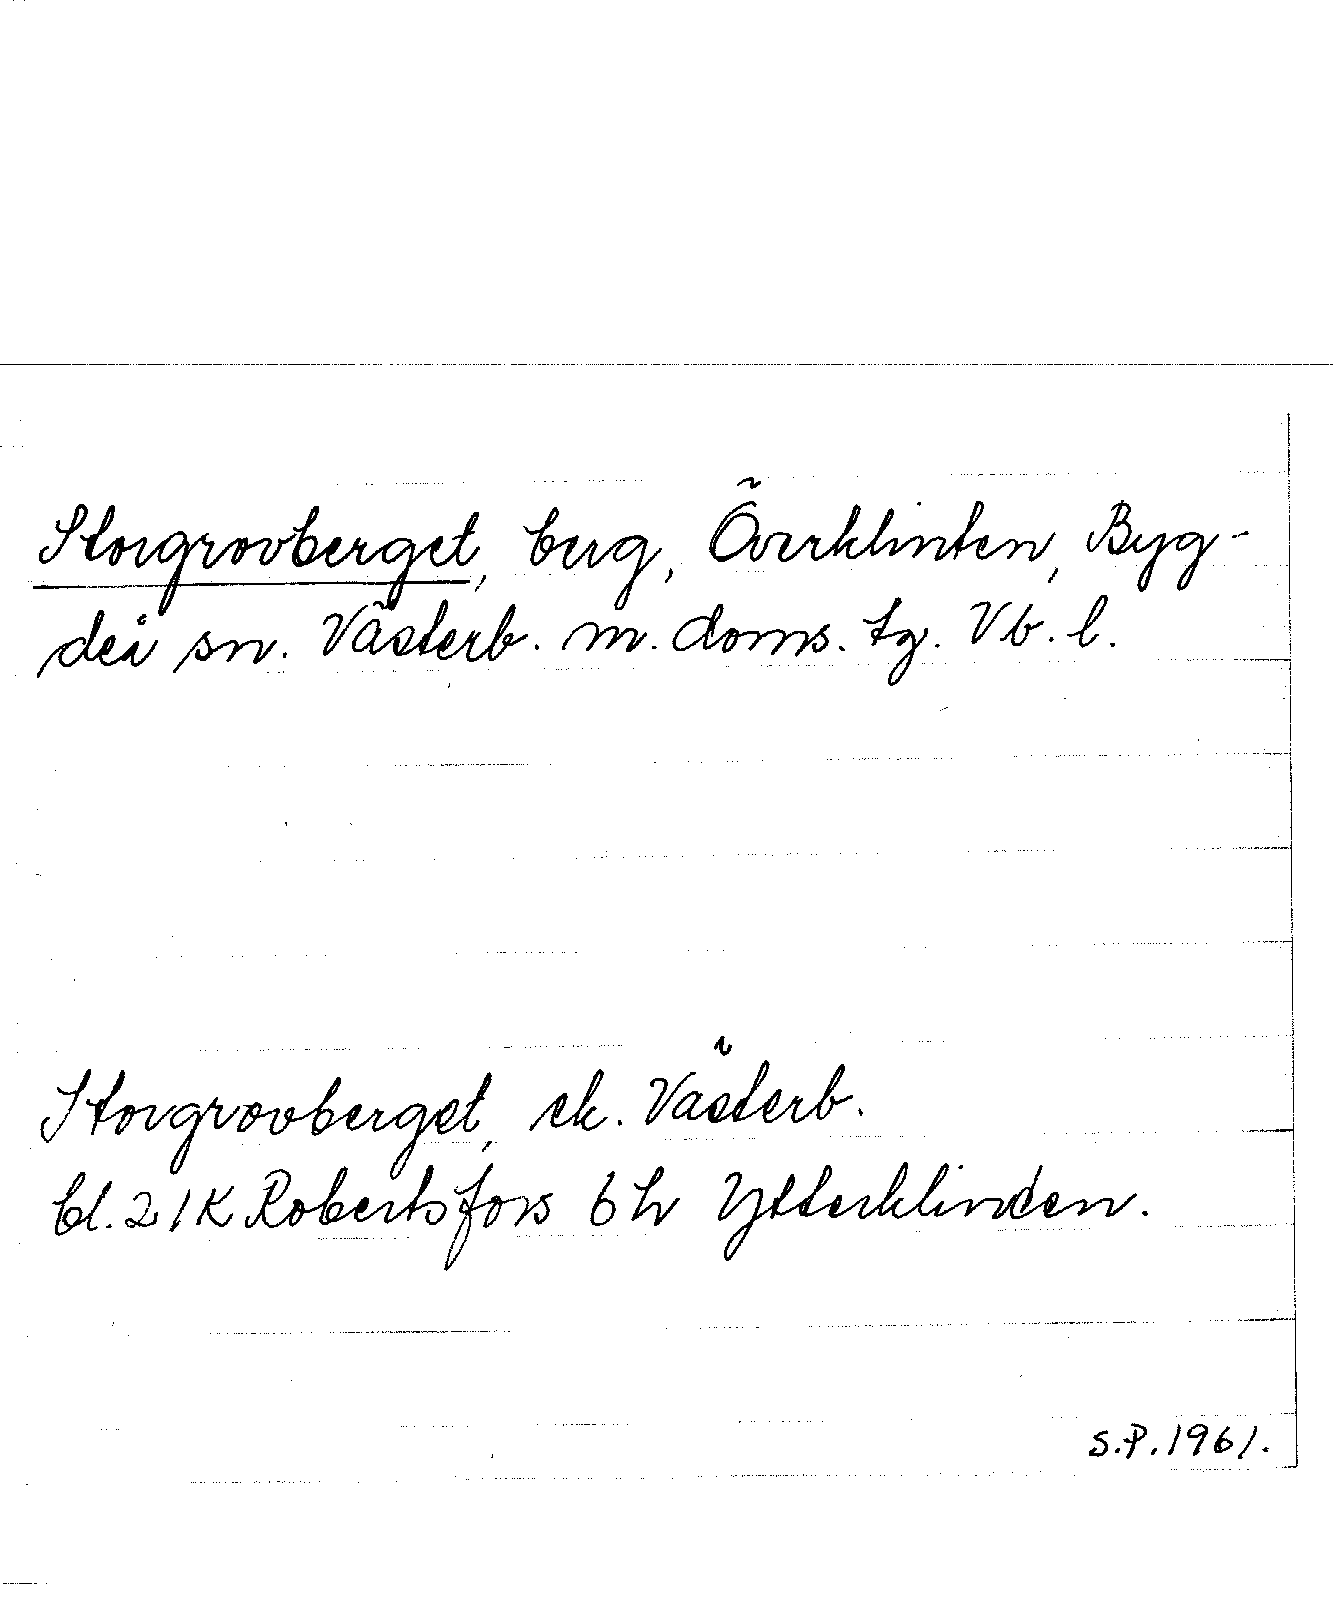 Storgrovberget, berg, Överklinten, Byg-
deå sn. Västerb. m. doms. tg. Vb. l.
Storgrovberget, ek. Västerb.
bl. 21K Robertsfors 6 h Ytterklinden.
S.P. 1961.